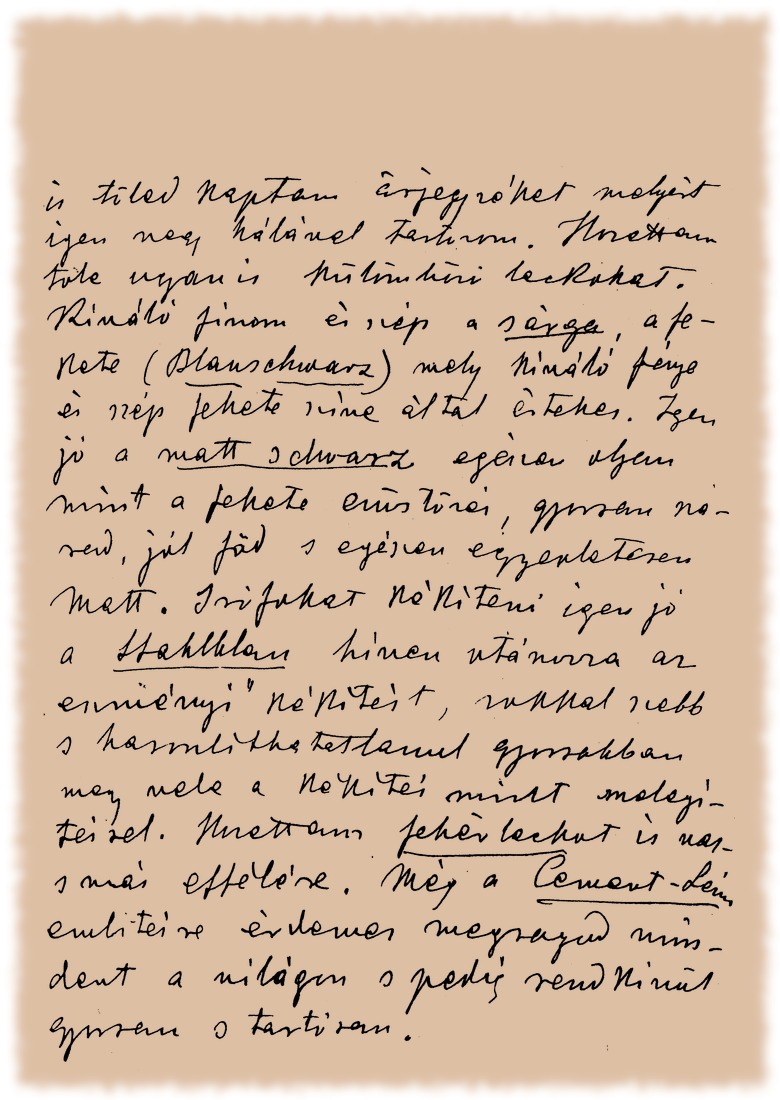 is tőled kaptam árjegyzéket melyért
igen nagy hálával tartozom. Hozattam
tőle ugyanis különböző lackokat.
Kiváló finom és szép a sárga, a fe-
kete (Blauschwarz) mely kiváló fénye
és szép fekete színe által értékes. Igen
jó a matt schwarz egészen olyan
mint a fekete ezüstözés, gyorsan szá-
rad, jól föd s egészen egyenletesen
matt. Srófokat kékíteni igen jó
a Stahlblau híven utánozza az
eredményi" kékítést, sokkal szebb
s hasonlíthatatlanul gyorsabban
megy vele a kékítés mint melegí-
téssel. Hozattam fehér lackot is vas-
s más effélére. Még a Cement-Leim
említésre érdemes megragad min-
dent a világon s pedig rendkívül
gyorsan s tartósan.